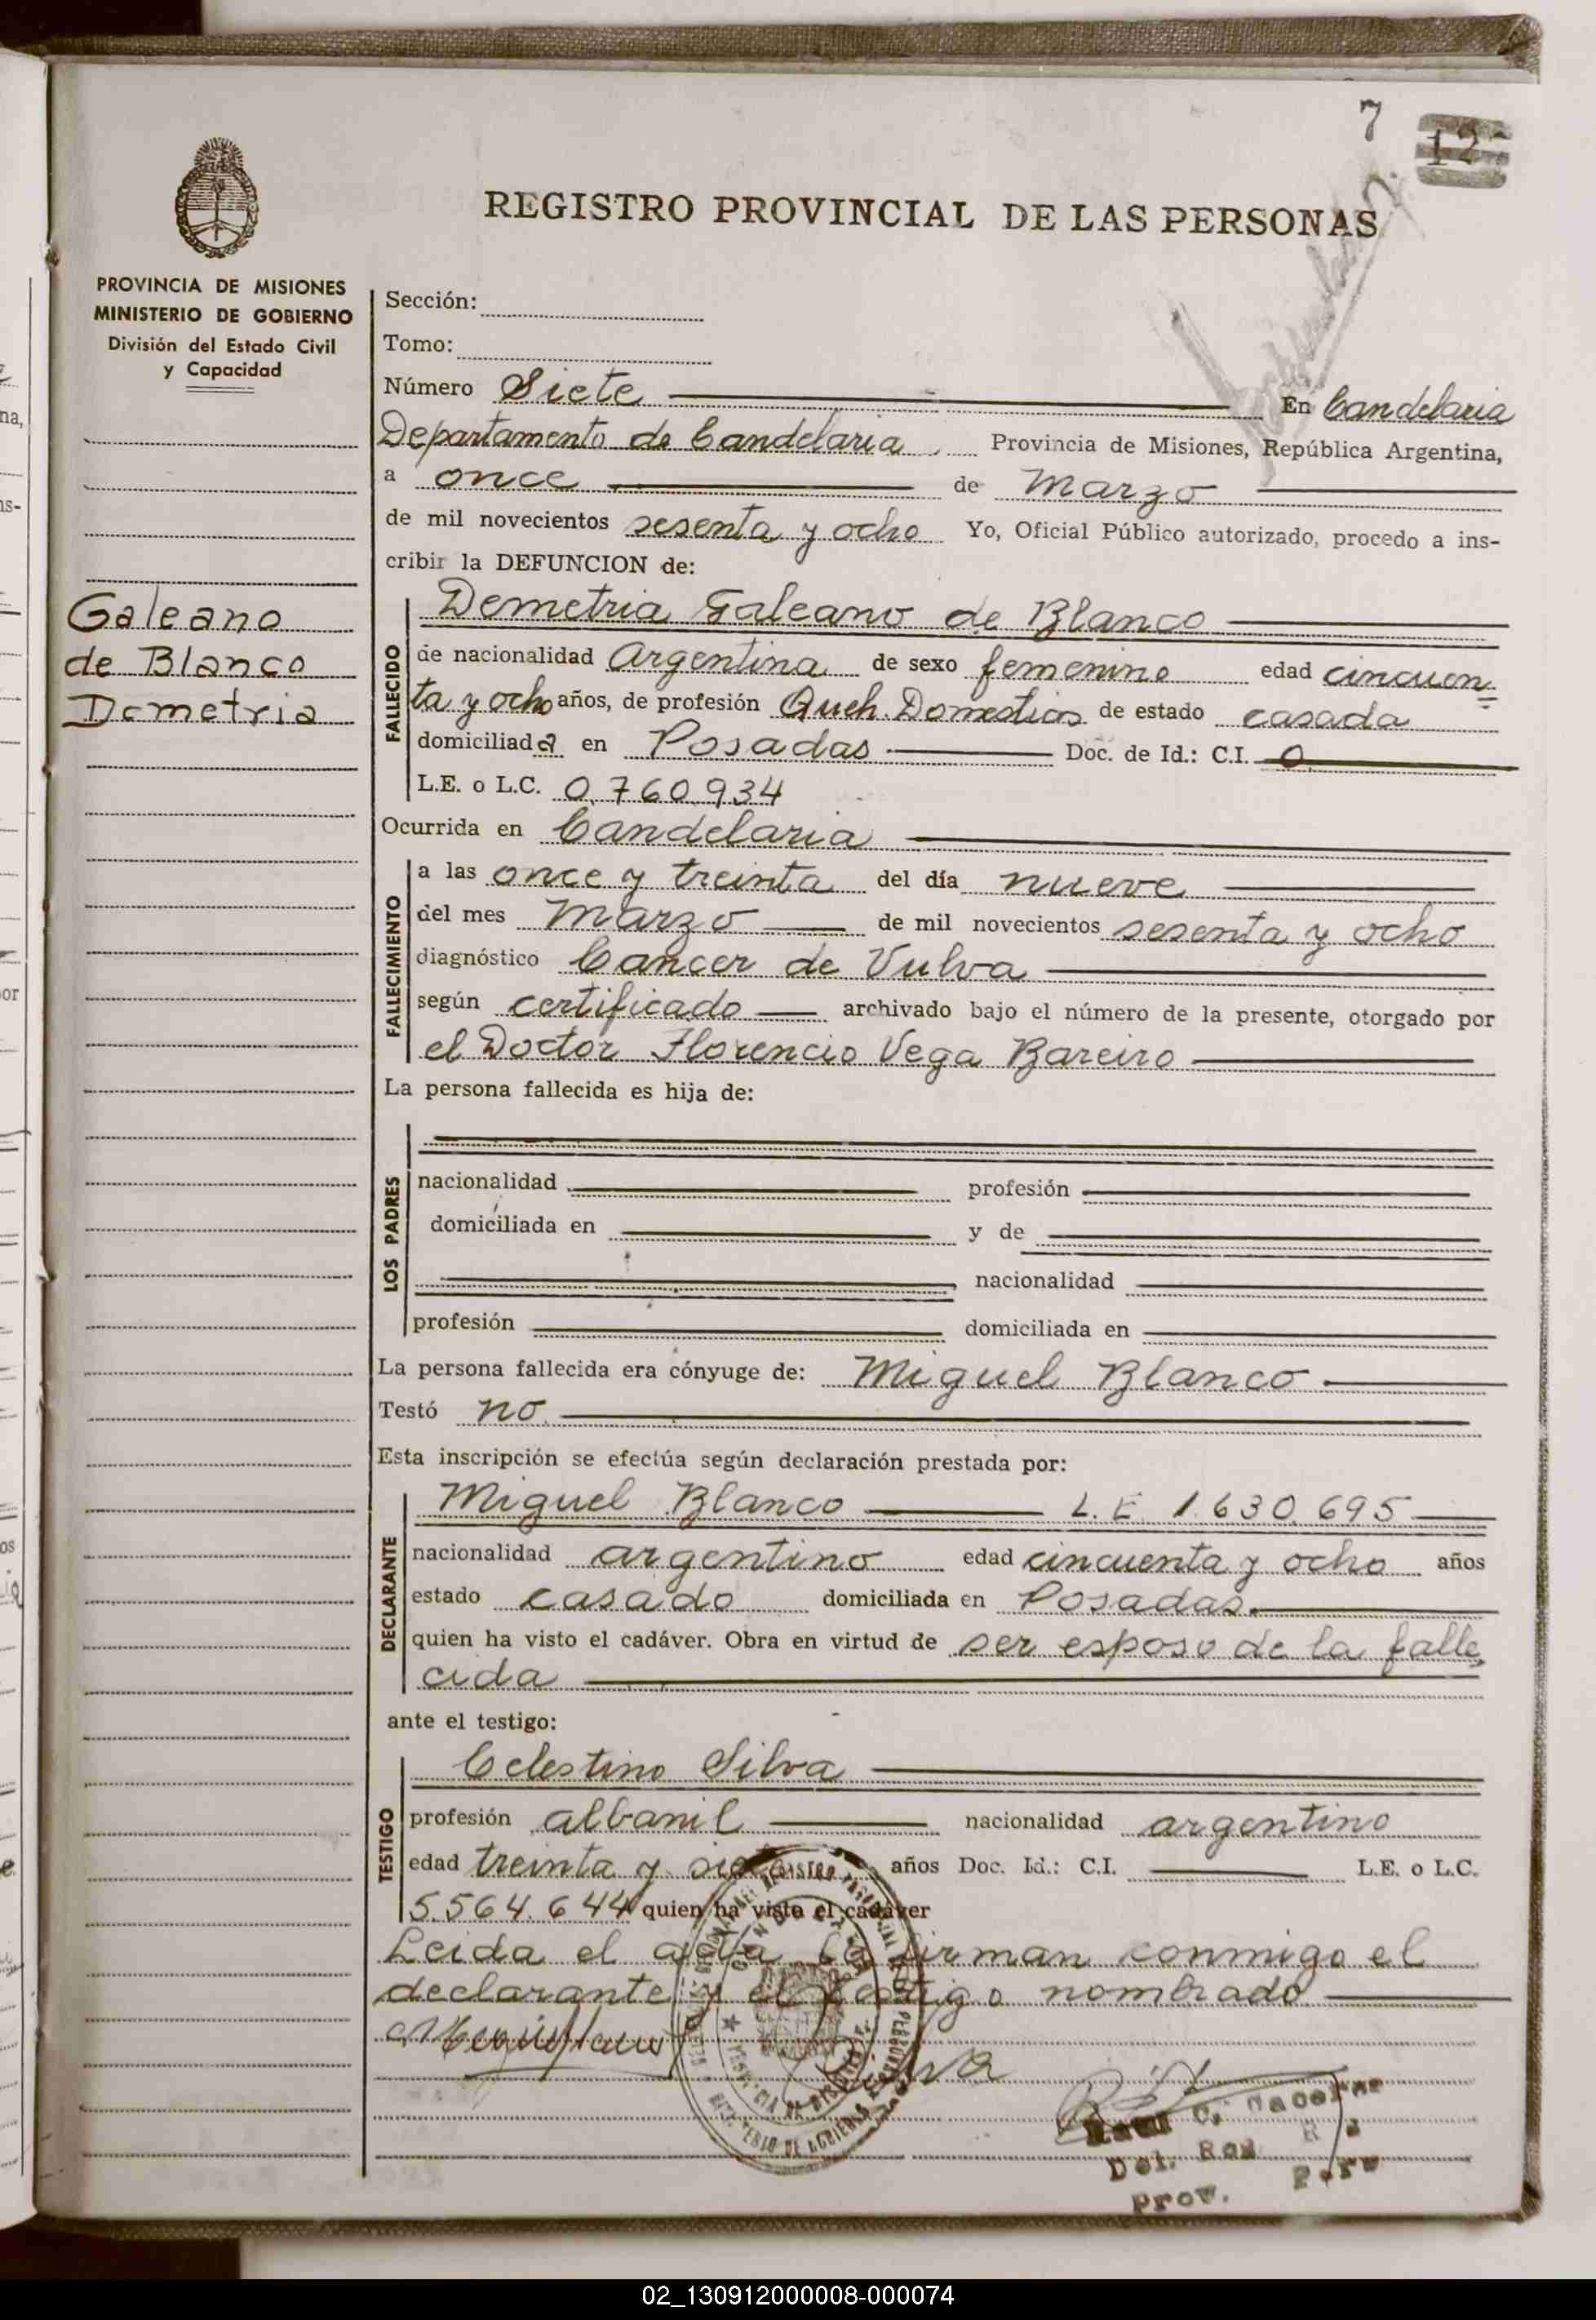 7
12
REGISTRO PROVINCIAL DE LAS PERSONAS
PROVINCIA DE MISIONES
MINISTERIO DE GOBIERNO
División del Estado Civil
y Capacidad
Galeano
de Blanco
Demetria
Sección:
Tomo:
Número Siete En Candelaria
Departamento de Candelaria Provincia de Misiones, República Argentina,
a once de Marzo
de mil novecientos sesenta y ocho Yo, Oficial Público autorizado, procedo a ins-
cribir la DEFUNCION de:
FALLECIDO
Demetria Galeano de Blanco
de nacionalidad Argentina de sexo femenino edad cincuen=
ta y ocho años, de profesión Queh. Domesticos de estado casada
domiciliada en Posadas Doc. de Id.: C.I. 0
L.E. o L.C. 0.760.934
Ocurrida en Candelaria
FALLECIMIENTO
a las once y treinta del día nueve
del mes Marzo de mil novecientos sesenta y ocho
diagnóstico Cancer de Vulva
según certificado archivado bajo el número de la presente, otorgado por
el Doctor Florencio Vega Bareiro
La persona fallecida es hija de:
LOS PADRES
nacionalidad profesión
domiciliada en y de
nacionalidad
profesión domiciliada en
La persona fallecida era cónyuge de: Miguel Blanco
Testó no
Esta inscripción se efectúa según declaración prestada por:
DECLARANTE
Miguel Blanco L.E. 1.630.695
nacionalidad argentino edad cincuenta y ocho años
estado casado domiciliada en Posadas.
quien ha visto el cadáver. Obra en virtud de ser esposo de la falle
cida
ante el testigo:
TESTIGO
Celestino Silva
profesión albanil nacionalidad argentino
edad treinta y siete años Doc. Id.: C.I. L.E. o L.C.
5.564.644 quien ha visto el cadáver
Leida el acta la firman conmigo el
declarante y el testigo nombrado
Del.
Prov.
02_130912000008-000074